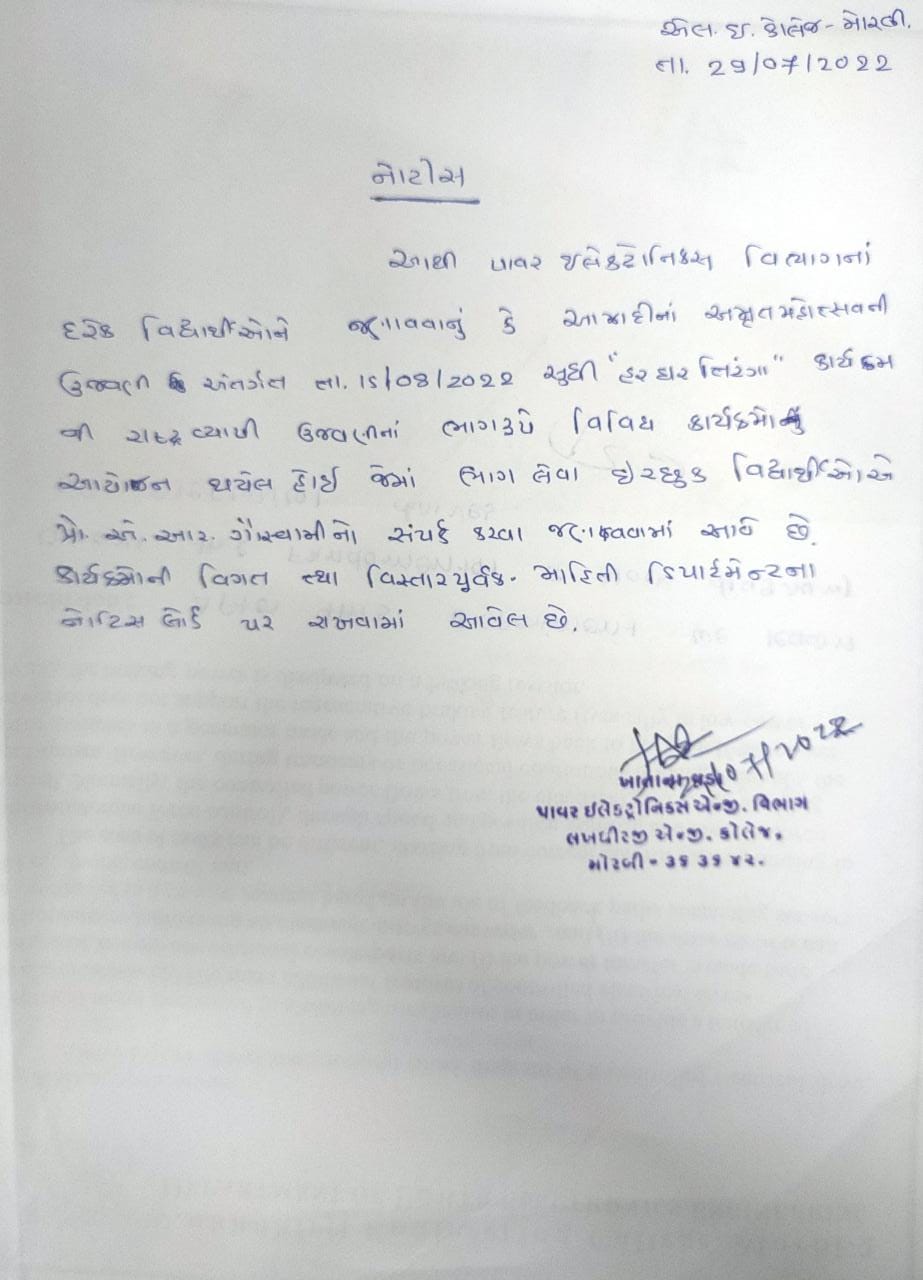 એલ. ઇ. કોલેજ - મોરબી.
તા. 29/07/2022
નોટીસ
આથી પાવર ઇલેક્ટ્રોનિક્સ વિભાગનાં
દરેક વિદ્યાર્થીઓને જણાવવાનું કે આઝાદીનાં અમૃતમહોત્સવની
ઉજવણી અંતર્ગત તા. 15/08/2022 સુધી "હર ઘર તિરંગા" કાર્યક્રમ
ની રાષ્ટ્રવ્યાપી ઉજવણીનાં ભાગરૂપે વિવિધ કાર્યક્રમોનું
આયોજન થયેલ હોઈ જેમાં ભાગ લેવા ઇચ્છુક વિદ્યાર્થીઓએ
પ્રો. એ. આર. ગૌસ્વામીનો સંપર્ક કરવા જણાવવામાં આવે છે.
કાર્યક્રમોની વિગત તથા વિસ્તારપૂર્વક માહિતી ડિપાર્ટમેન્ટના
નોટિસ બોર્ડ પર રાખવામાં આવેલ છે.
ખાતાના વડા
પાવર ઇલેક્ટ્રોનિક્સ એન્જી. વિભાગ
લખધીરજી એન્જી. કોલેજ.
મોરબી - ૩૬૩૬૪૨.